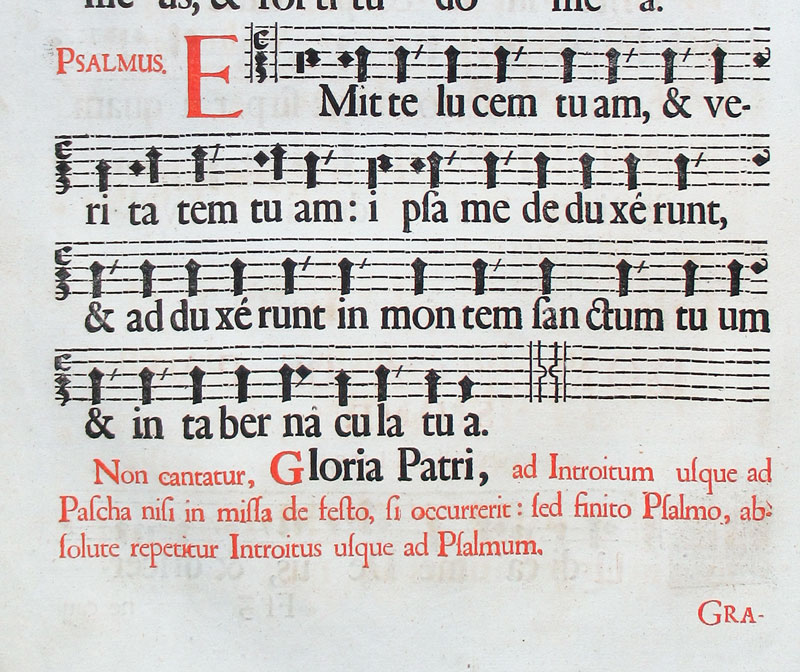 me us, & for ti tu do me a.
PSALMUS. EMit te lu cem tu am, & ve-
ri ta tem tu am: i psa me de du xé runt,
& ad du xé runt in mon tem san ctum tu um
& in ta ber na cu la tu a.
Non cantatur, Gloria Patri, ad Introitum usque ad
Pascha nisi in missa de festo, si occurrerit: sed finito Psalmo, ab-
solute repetitur Introitus usque ad Psalmum.
GRA-